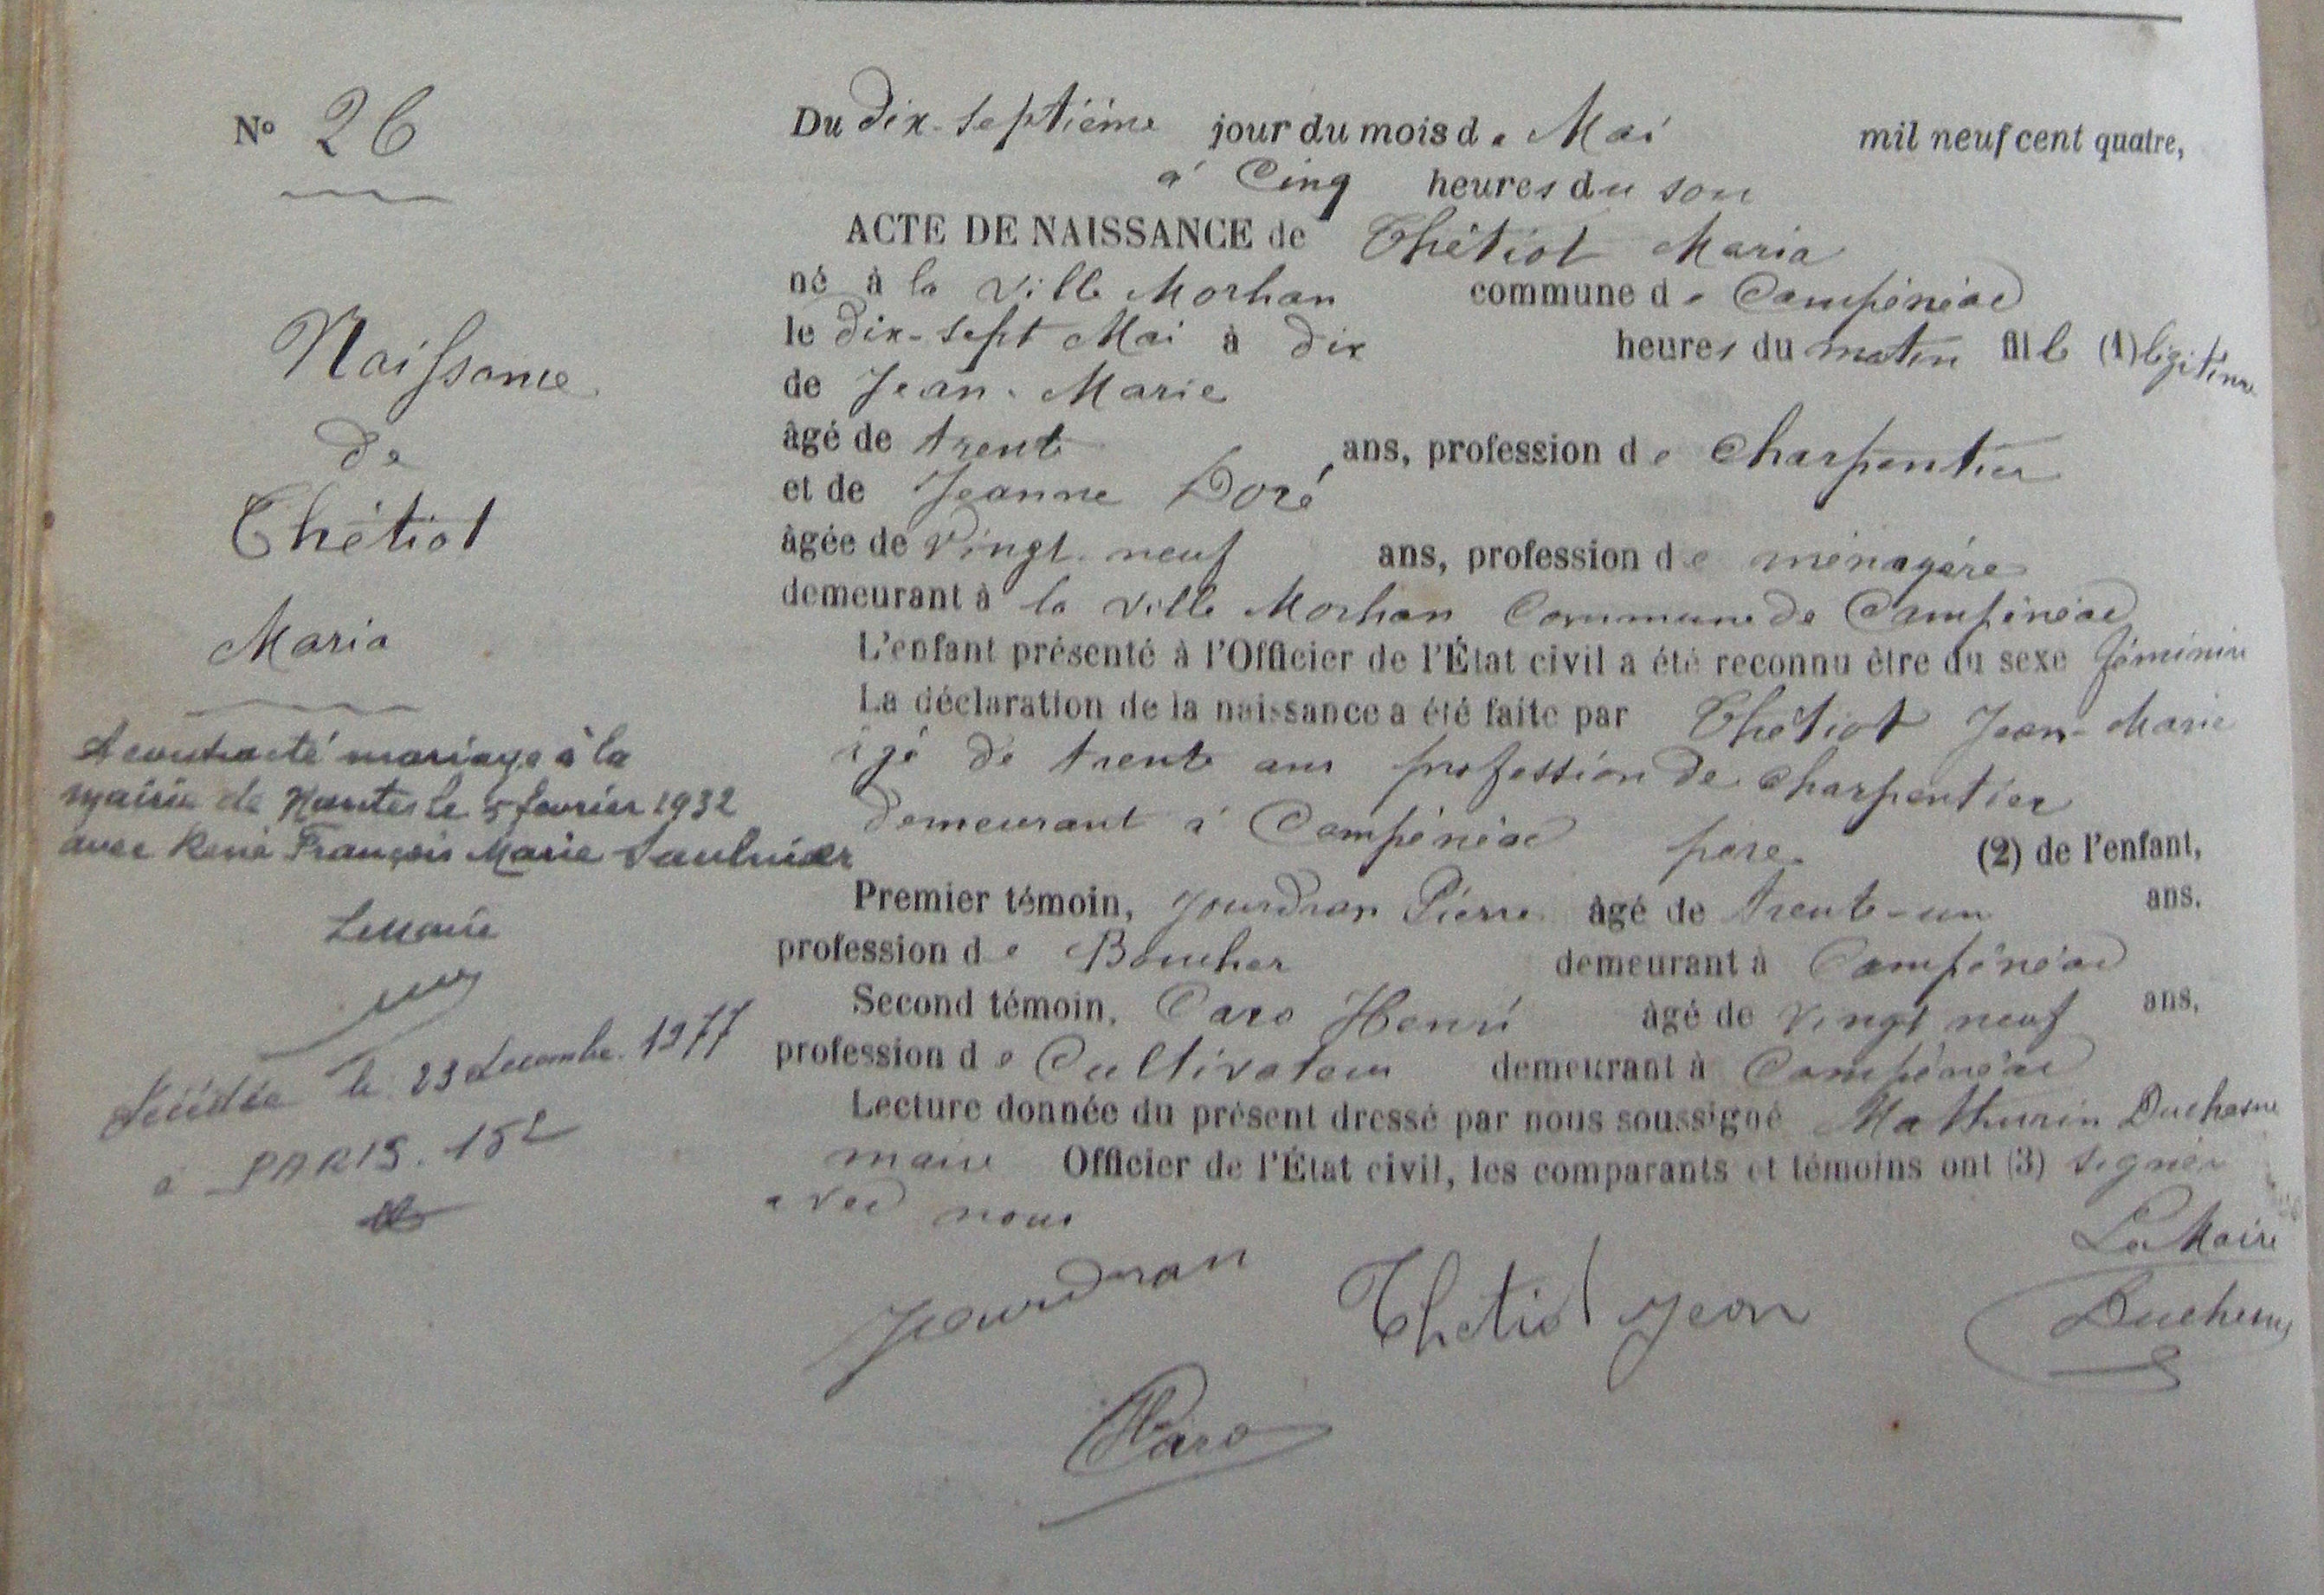 N° 26
Naissance
de
Thétiot
Maria
A contracté mariage à la
mairie de Nantes le 5 février 1932
avec René François Marie Saulnier
Le Maire
Décédée le 23 décembre 1977
à PARIS. 15e
Du dix-septième jour du mois de Mai mil neuf cent quatre,
à Cinq heures du soir
ACTE DE NAISSANCE de Thétiot Maria
né à la ville Morhan commune de Campénéac
le dix-sept Mai à dix heures du matin fille (1) légitime
de Jean-Marie
âgé de trente ans, profession de charpentier
et de Jeanne Doré
âgée de vingt-neuf ans, profession de ménagère
demeurant à la ville Morhan Commune de Campénéac
L'enfant présenté à l'Officier de l'État civil a été reconnu être du sexe féminin
La déclaration de la naissance a été faite par Thétiot Jean-Marie
âgé de trente ans profession de charpentier
demeurant à Campénéac père (2) de l'enfant,
Premier témoin, Jourdran Pierre âgé de trente-un ans,
profession de Boucher demeurant à Campénéac
Second témoin, Caro Henri âgé de vingt neuf ans,
profession de Cultivateur demeurant à Campénéac
Lecture donnée du présent dressé par nous soussigné Mathurin Duchesne
maire Officier de l'État civil, les comparants et témoins ont (3) signer
avec nous
Le Maire
Jourdran Thetiot Jean Duchesne
HCaro